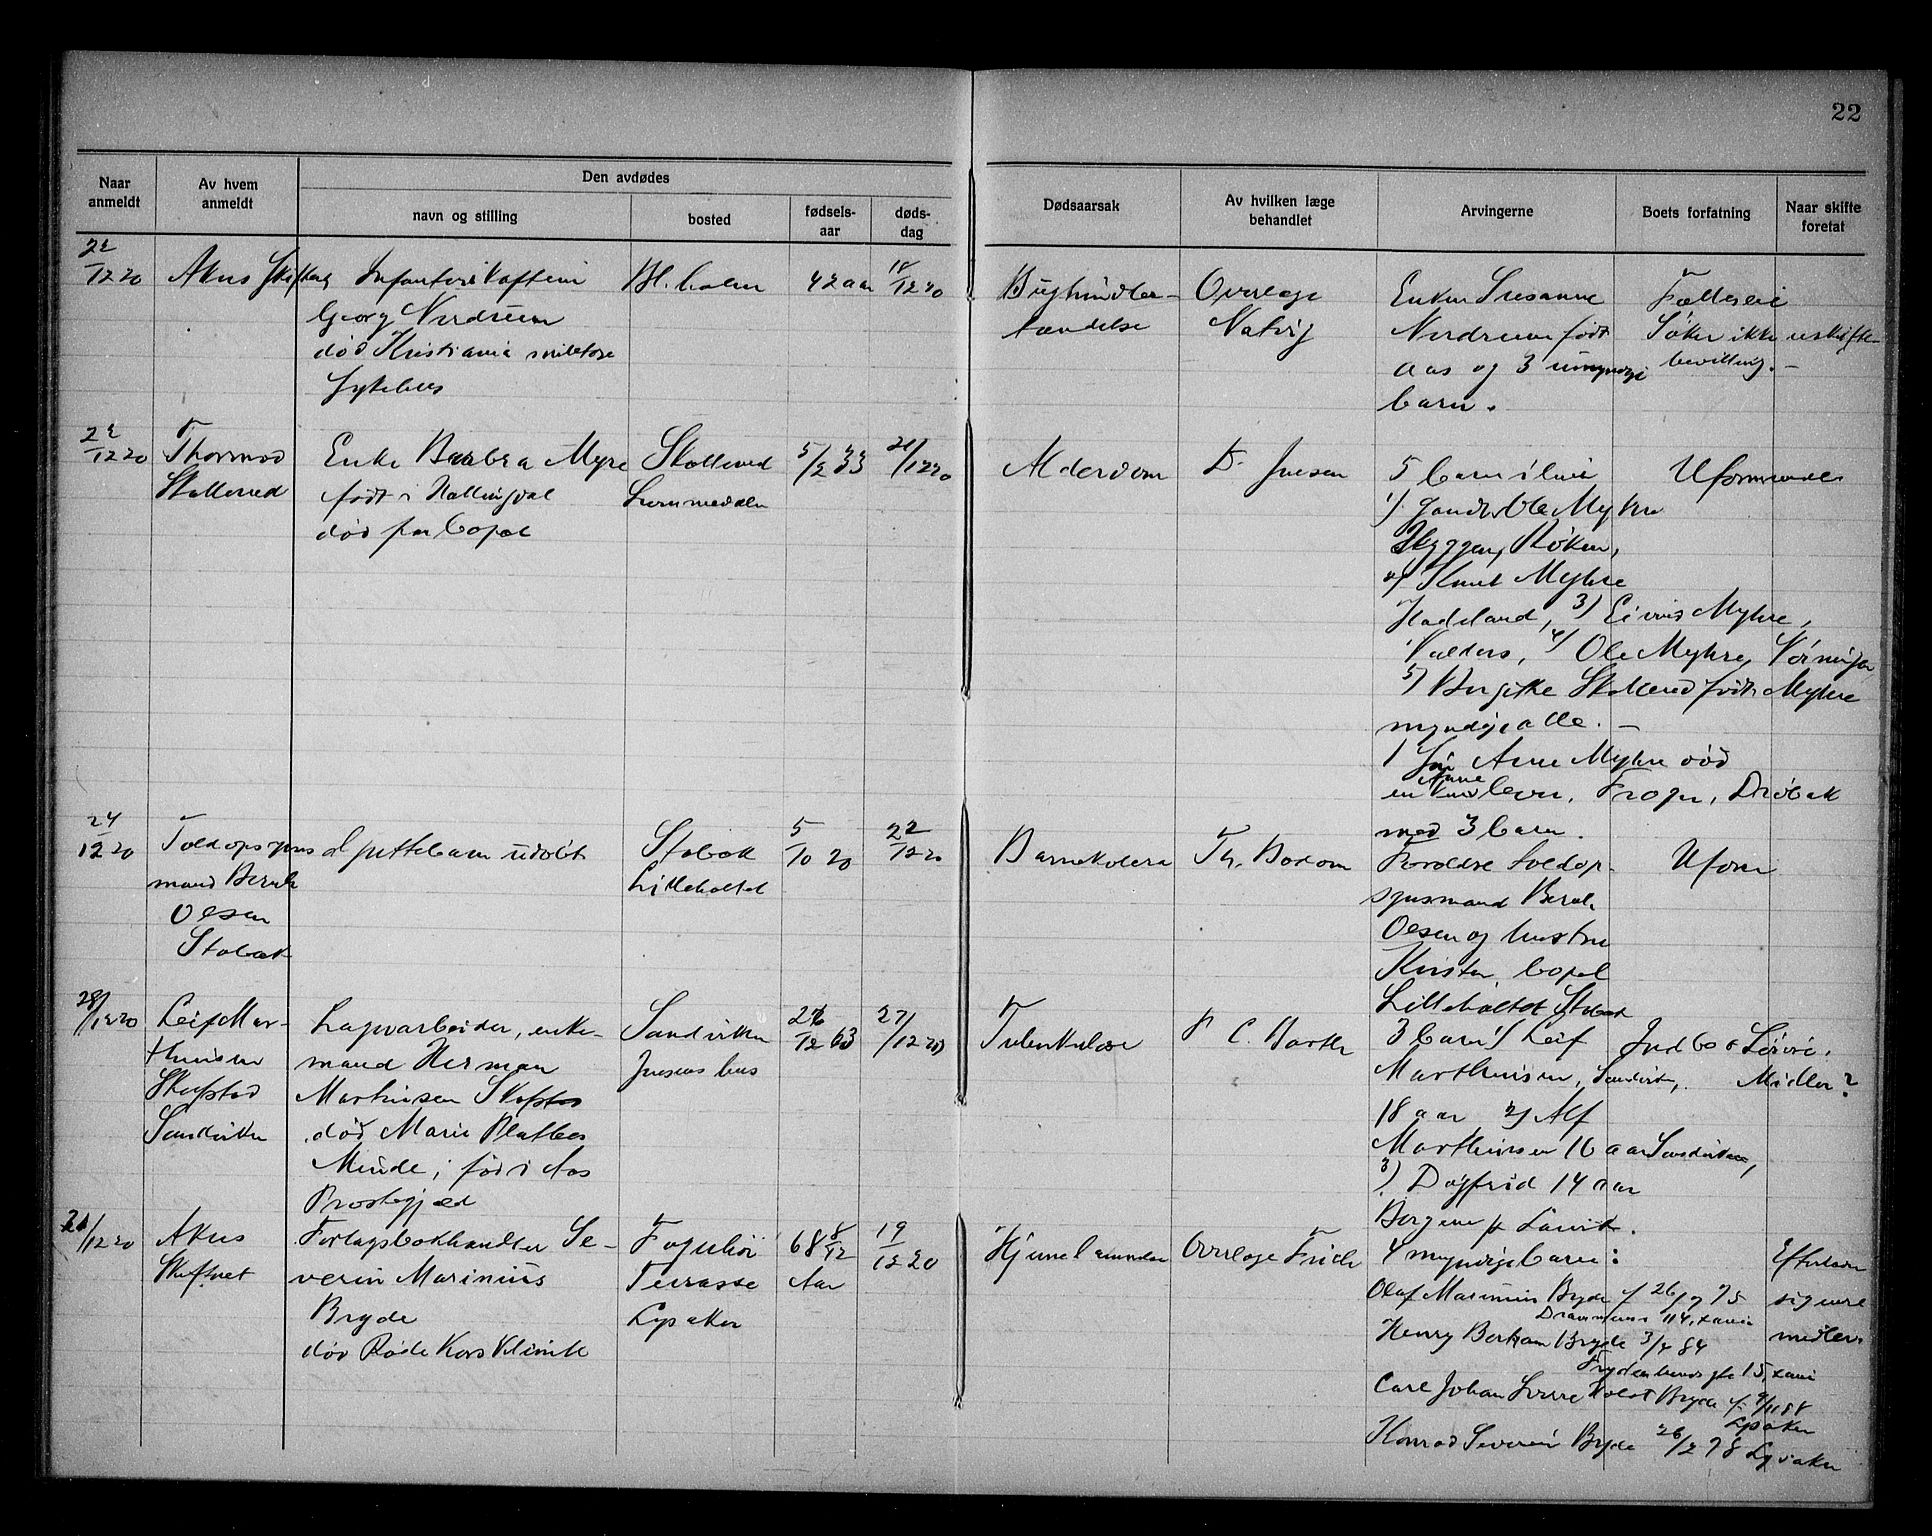 22
Naar anmeldt
Av hvem anmeldt
Den avdødes
navn og stilling
bosted
fødsels-aar
døds-dag
Dødsaarsak
Av hvilken læge behandlet
Arvingerne
Boets forfatning
Naar skifte foretat
2?/12 20
Akus Skifteret
Infanterikaptein
Georg Nordrum
død Kristiania militære
sykehus
Bl.holm
42 aar
18/12 20
Bughindebe-
tændelse
Overlæge
Natvig
Enken Susanne
Nordrum født
Aas og 3 umyndige
barn.
Fælleseie
Søker ikke uskifte-
bevilling. -
22/12 20
Thormod
Skollerud
Enke Barbra Myre
født i Hallingdal
død på bopæl
Skollerud
Lommedalen
5/2 33
21/12 20
Alderdom
D. Juesen
5 barn i live
1) Gaardbr. Ole Myhre
Hyggen, Røken,
2) Knut Myhre
Hadeland, 3) Eivind Myhre,
Valders, 4) Ole Myhre,
5) Birgitte Skollerud født Myhre
myndige alle. -
1 Søn Arne Myhre død
en Enke lever, Frogn, Drøbak
med 3 barn.
24/12 20
Toldopsyns
mand Bernh
Olsen
Stabæk
Spættebarn udøbt
Stabæk
Lilleholtet
5/10 20
22/12 20
Barnekolera
Th. Bodom
Uform
Forældre toldop-
synsmand Bernh.
Olsen og hustru
Kristin, bopæl
Lilleholtet Stabæk
28/12 20
Leif Mar-
thinsen
Skofstad
Sandviken
Lagerarbeider, enke-
mand Herman
Marthinsen Skofstad
død Marie Plathes
Minde, født i Aas
Prestegjæld
Sandviken
Juesens hus
26/12 63
27/12 20
Tuberkulose
C. Barth
3 barn 1) Leif
Marthinsen, Sandviken,
18 aar 2) Alf
Marthinsen 16 aar Sandviken,
3) Dagfrid 14 aar
Bergene p Larvik.
Indbo &amp; Løsøre.
Midler?
21/12 20
Akus
Skifteret
Forlagsbokhandler Se-
verin Marinius
Bryde
død Røde Kors Klinik
Fagerli
Terrasse
Lysaker
68 8/12
Aar
19/12 20
Hjernebetændelse
Overlæge Frich
4 myndige barn:
Olaf Marinius Bryde f 26/7 75
Drammensv 114, Xania
Henry Bertram Bryde 3/4 84
Frydenlundsgte 15, Xania
Carl Johan Sverre Holst Bryde f. 9/11 88
Lysaker
Konrad Severin Bryde 26/2 78 Lysaker
Efterlader
sig uvæs
midler